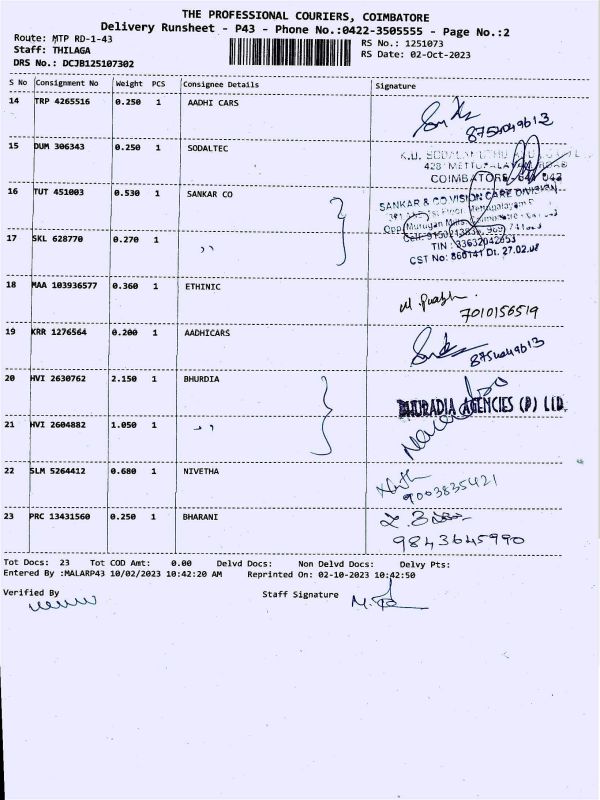 THE PROFESSIONAL COURIERS, COIMBATORE
Delivery Runsheet - P43 - Phone No.:0422-3505555 - Page No.:2
Route: MTP RD-1-43
RS No.: 1251073
Staff: THILAGA
RS Date: 02-Oct-2023
DRS No.: DCJB125107302
S No Consignment No Weight PCS Consignee Details Signature
14 TRP 4265516 0.250 1 AADHI CARS
8754049613
15 DUM 306343 0.250 1 SODALTEC
428 METTUPALAYAM ROAD
COIMBATORE - 641 043
16 TUT 451003 0.530 1 SANKAR CO
SANKAR & CO VISION CARE DIVISION
17 SKL 628770 0.270 1 ,,
TIN : 33632042653
CST No: 860141 Dt. 27.02.08
18 MAA 103936577 0.360 1 ETHINIC
7010156519
19 KRR 1276564 0.200 1 AADHICARS
8754049613
20 HVI 2630762 2.150 1 BHURDIA
BHURADIA AGENCIES (P) LTD.
21 HVI 2604882 1.050 1 ,,
22 SLM 5264412 0.680 1 NIVETHA
9003835421
23 PRC 13431560 0.250 1 BHARANI
9843645990
Tot Docs: 23 Tot COD Amt: 0.00 Delvd Docs: Non Delvd Docs: Delvy Pts:
Entered By :MALARP43 10/02/2023 10:42:20 AM Reprinted On: 02-10-2023 10:42:50
Verified By Staff Signature